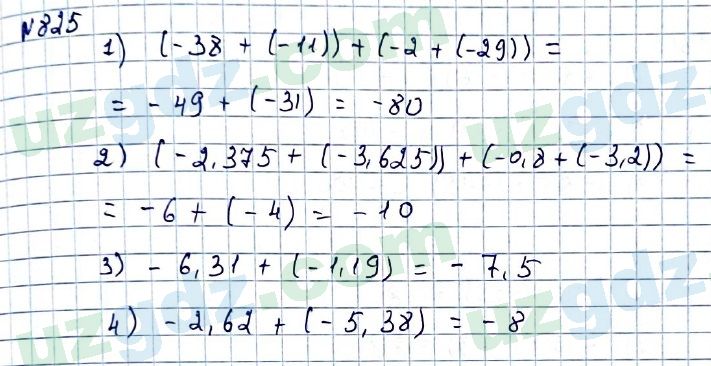 №825
1) (-38 + (-11)) + (-2 + (-29)) =
= - 49 + (-31) = -80
2) (-2,375 + (-3,625)) + (-0,8 + (-3,2)) =
= -6 + (-4) = -10
3) - 6,31 + (-1,19) = - 7,5
4) - 2,62 + (-5,38) = - 8
uzgdz.com
uzgdz
uzgdz.com
uzgdz